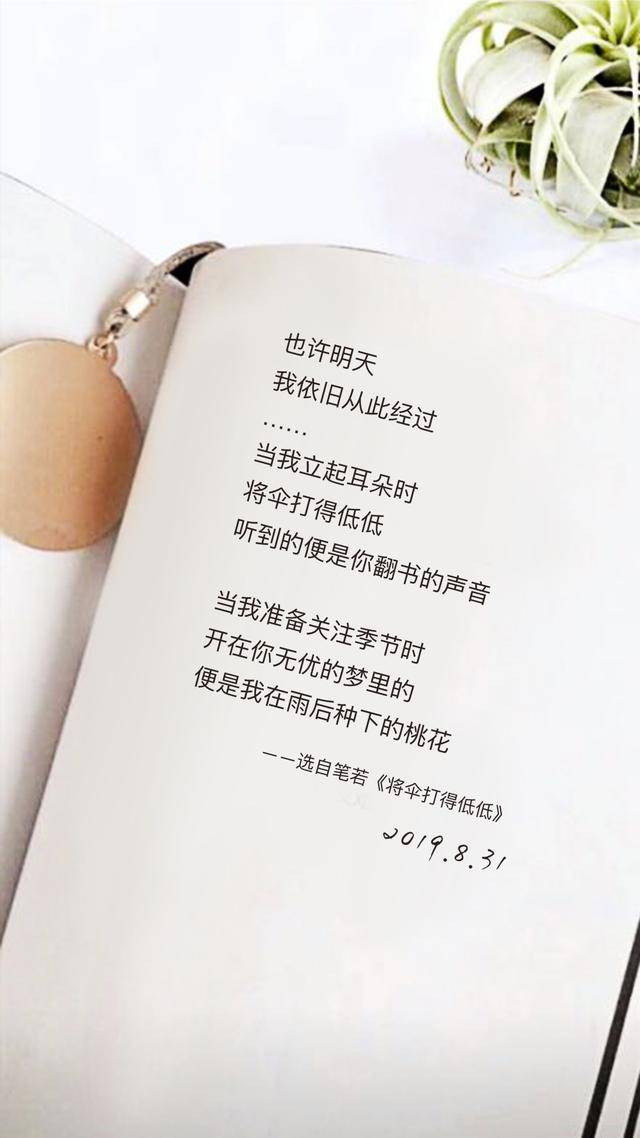 也许明天
我依旧从此经过
……
当我立起耳朵时
将伞打得低低
听到的便是你翻书的声音
当我准备关注季节时
开在你无优的梦里的
便是我在雨后种下的桃花
——选自笔若《将伞打得低低》
2019.8.31